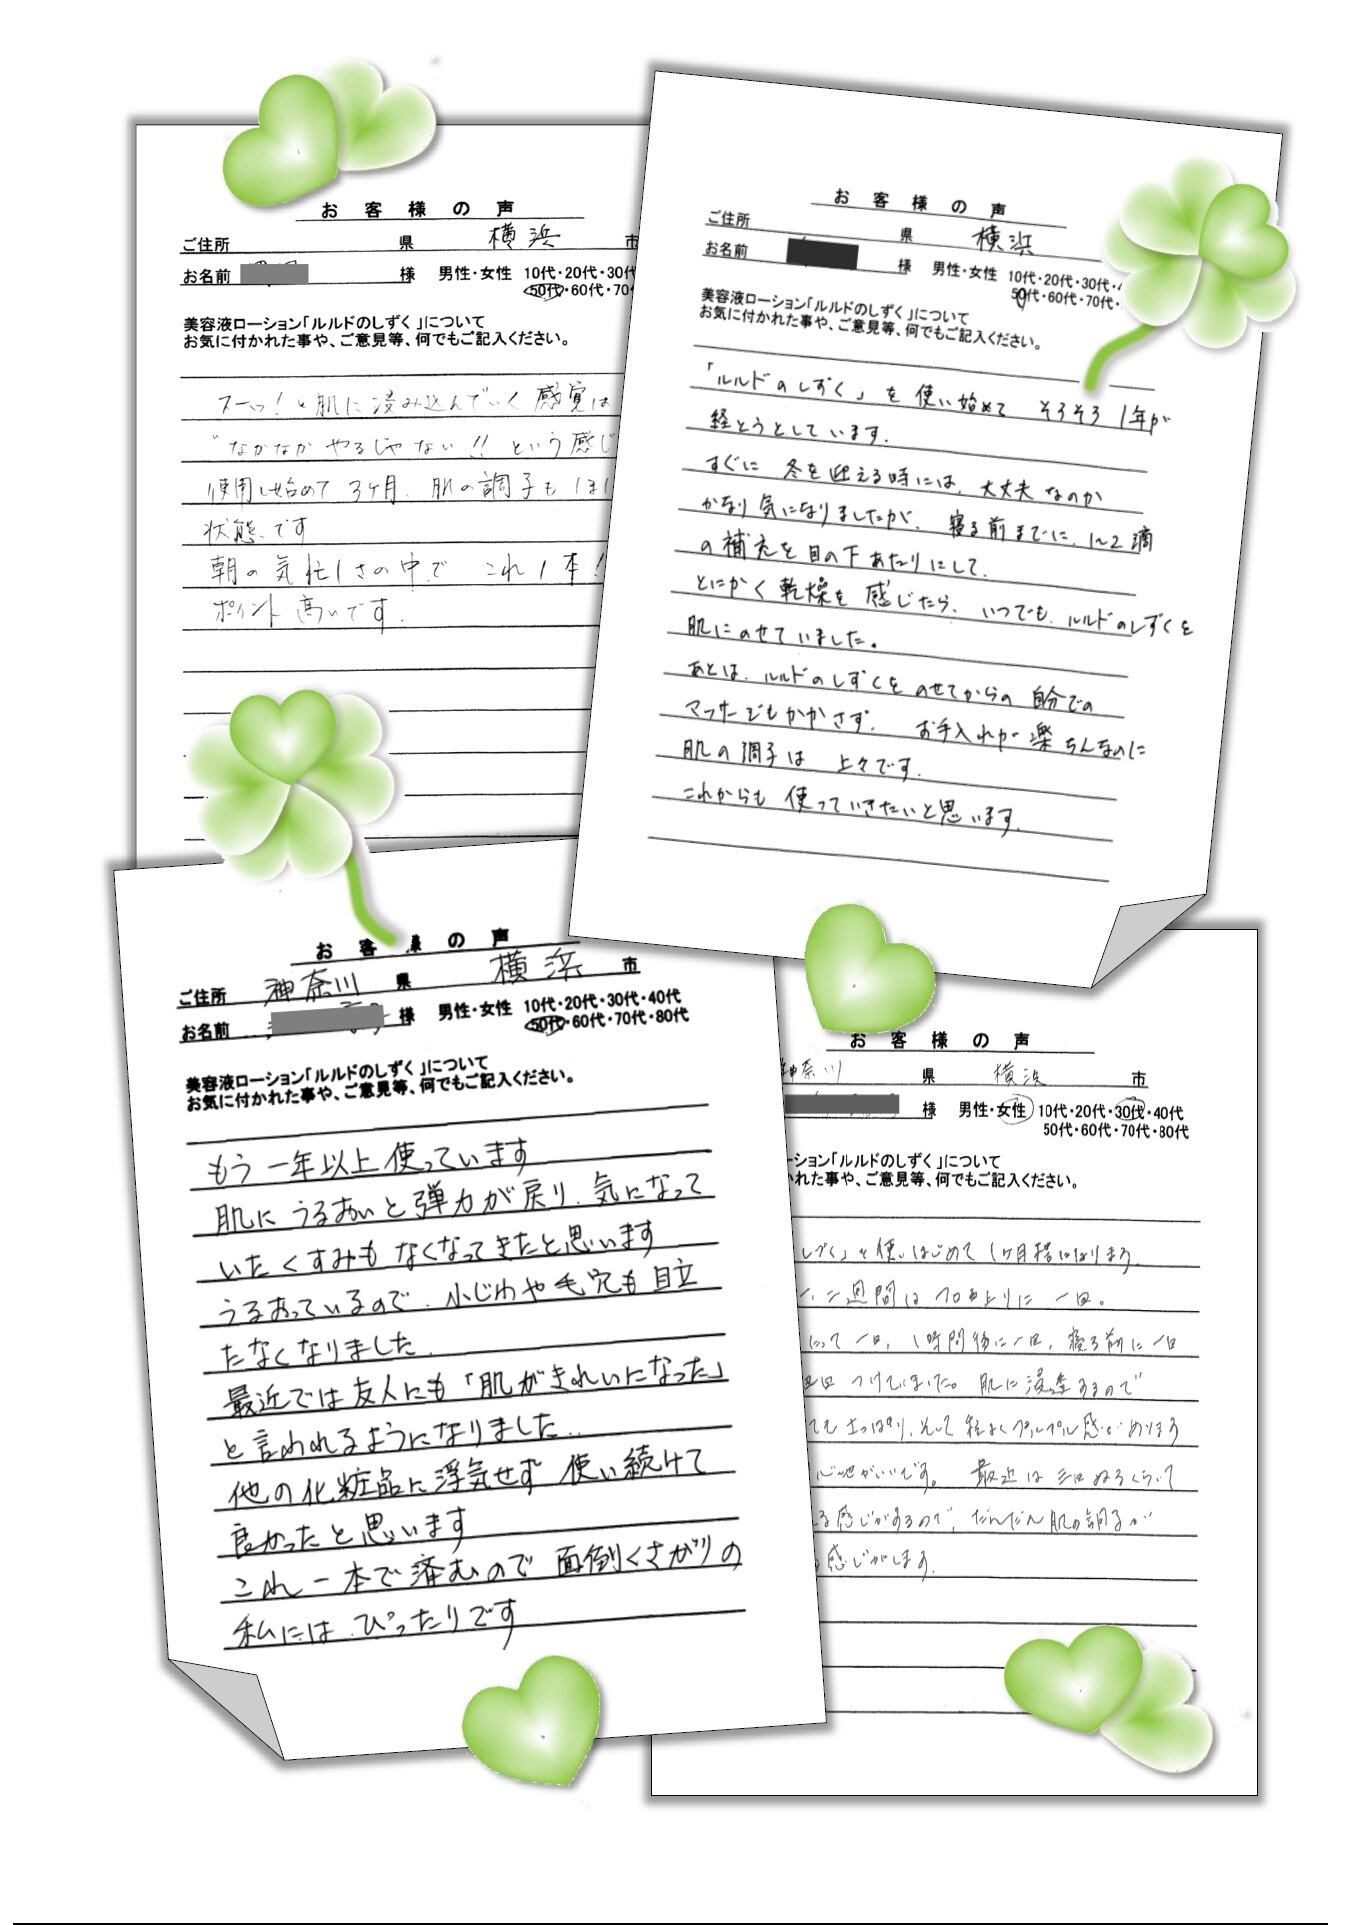 お客様の声
ご住所 県 横浜 市
お名前 様 男性・女性 10代・20代・30代
50代・60代・70代
美容液ローション「ルルドのしずく」について
お気に付かれた事や、ご意見等、何でもご記入ください。
スーッ!と肌に浸み込んでいく感覚は
"なかなかやるじゃない!! という感じ
使用し始めて3ヶ月、肌の調子も
状態です
朝の気忙しさの中で これ1本!
ポイント高いです.
お客様の声
ご住所 県 横浜
お名前 様 男性・女性 10代・20代・30代・
50代・60代・70代・
美容液ローション「ルルドのしずく」について
お気に付かれた事や、ご意見等、何でもご記入ください。
「ルルドのしずく」を使い始めて そろそろ1年が
経とうとしています.
すぐに 冬を迎える時には、大丈夫なのか
かなり気になりましたが、 寝る前までに、1~2滴
の補充を目の下あたりにして、
とにかく乾燥を感じたら、いつでも、ルルドのしずくを
肌にのせていました。
あとは、ルルドのしずくをのせてからの自分での
マッサージもかかさず、 お手入れが楽ちんなのに
肌の調子は 上々です.
これからも 使っていきたいと思います.
お客様の声
ご住所 神奈川 県 横浜 市
お名前 様 男性・女性 10代・20代・30代・40代
50代・60代・70代・80代
美容液ローション「ルルドのしずく」について
お気に付かれた事や、ご意見等、何でもご記入ください。
もう一年以上使っています
肌にうるおいと弾力が戻り、気になって
いたくすみもなくなってきたと思います
うるおっているので、小じわや毛穴も目立
たなくなりました.
最近では友人にも「肌がきれいになった」
と言われるようになりました..
他の化粧品に浮気せず 使い続けて
良かったと思います
これ一本で済むので面倒くさがりの
私には、ぴったりです
お客様の声
神奈川 県 横浜 市
様 男性・女性 10代・20代・30代・40代
50代・60代・70代・80代
ション「ルルドのしずく」について
かれた事や、ご意見等、何でもご記入ください。
しずく」を使いはじめて1ヶ月程になります.
二週間は フロ上りに 一回。
一回, 1時間後に一回, 寝る前に一回
つけていました。 肌に浸透するので
ても さっぱり, そして 程よくプルプル感があります
心地がいいです。 最近は
る感じがするので, だんだん肌の調子が
感じがします.